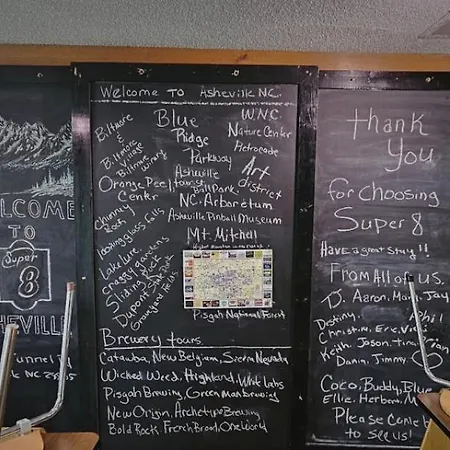 WELCOME
TO
Super
8
ASHEVILLE
Tunnel Rd
Welcome To Asheville NC.
Biltmore
&
Biltmore
Village
Biltmore
Winery
Orange Peel
Center
Chimney
Rock
Looking glass Falls
Lake Lure
Craggy Gardens
Sliding Rock
Dupont State Park
Graveyard Fields
Blue
Ridge
Parkway
Asheville
Tourist
Ball Park
NC Arboretum
Asheville Pinball Museum
Mt Mitchell
W.N.C.
Nature Center
Retrocade
Art
District
Pisgah National Forest
Brewery Tours
Catawba, New Belgium, Sierra Nevada
Wicked Weed, Highland, White Labs
Pisgah Brewing, Green Man Brewing
New Origin, Archetype Brewing
Bold Rock, French Broad, One World
Thank
You
for choosing
Super 8
Have a great stay!!
From All of us.
TJ. Aaron, Mari, Jay
Destiny, Phil
Christina, Eric, Vic
Keith, Jason, Tina, Brian
Dania, Jimmy,
Coco, Buddy, Blue
Ellie, Herbert, M
Please Come b
to see us!